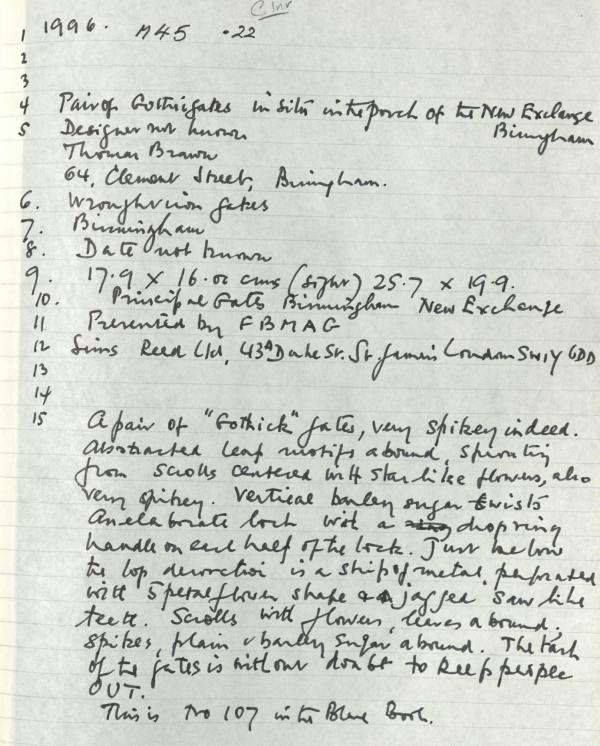 C Inv
1 1996. M45 .22
2
3
4 Pair of Gothic gates in situ in the porch of the New Exchange
Birmingham
5 Designer not known
Thomas Brawn
64, Clement Street, Birmingham.
6. Wrought iron gates
7. Birmingham
8. Date not known
9. 17.9 X 16.00 cms (sight) 25.7 x 19.9.
10. Principal Gates Birmingham New Exchange
11 Presented by FBMAG
12 Sims Reed Ltd, 43A Duke St. St. James's London SW1Y 6DD
13
14
15 A pair of "Gothick" gates, very spikey indeed.
Abstracted leaf motifs abound, sprouting
from scrolls centered with star like flowers, also
very spikey. Vertical barley sugar twists
An elaborate lock with a drop ring
handle on each half of the lock. Just below
the top decoration is a strip of metal, perforated
with 5 petal flower shape & a jagged saw like
teeth. Scrolls with flowers, leaves abound.
Spikes, plain & barley sugar abound. The task
of the gates is without doubt to keep people
OUT.
This is No 107 in the Blue Book.